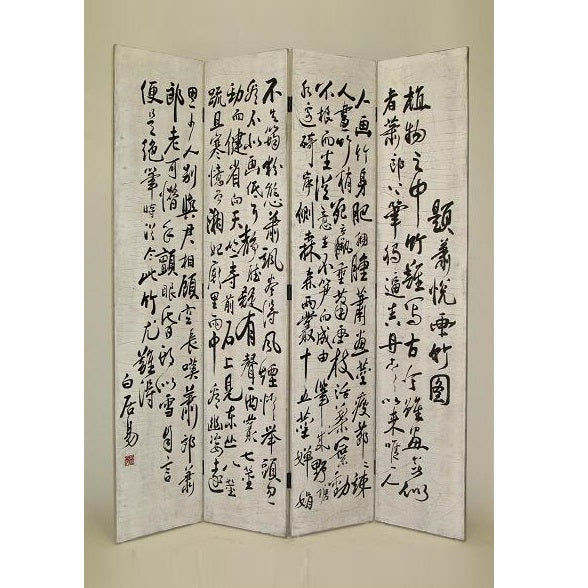 題蕭悅画竹图
植物之中竹難写古今雖畫無似
者蕭郎下筆獨逼真丹青以来唯一人
人画竹身肥擁腫蕭画莖瘦節々竦
人畫竹梢死羸垂蕭画枝活葉葉動
不根而生從意生不笋而成由筆成野塘
水邊碕岸側森森兩叢十五莖嬋娟
不失筠粉態蕭颯盡得風煙情举頭忽
看不似画低耳靜聽疑有聲西叢七莖
勁而健省向天竺寺前石上見東丛八莖
疏且寒憶曾湘妃廟里雨中看幽姿遠
思少人别與君相顧空長嘆蕭郎蕭
郎老可惜手顫眼昏頭似雪自言
便是绝筆時從今此竹尤難得
白居易